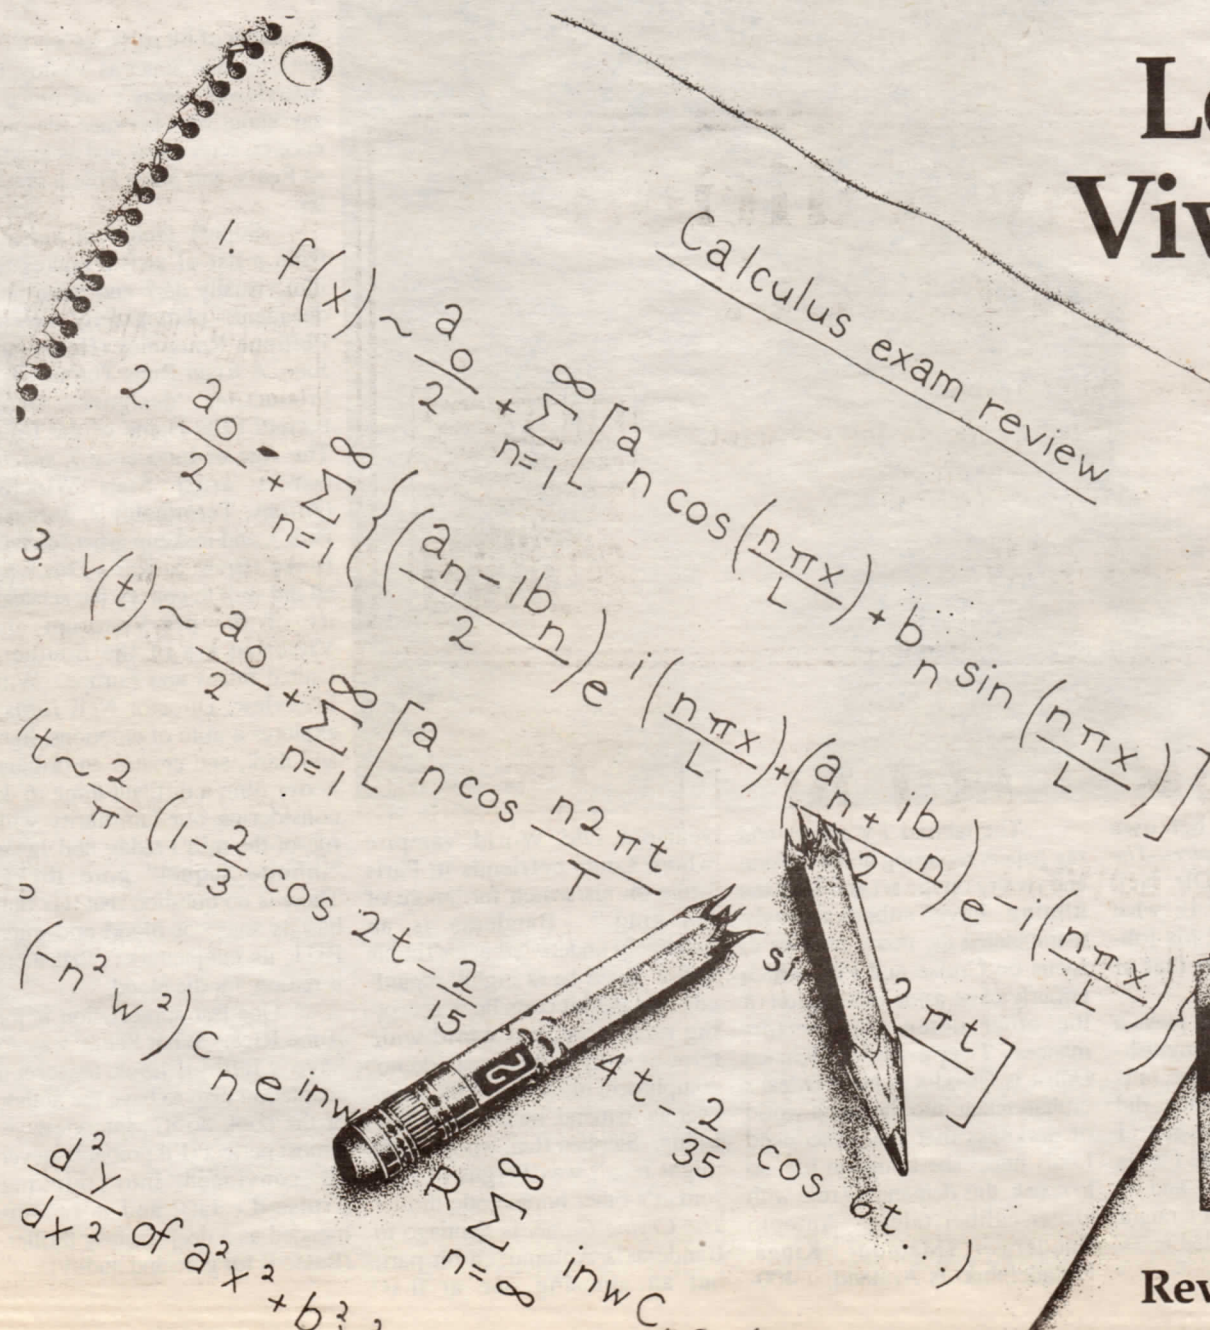 Lo
Viv
Calculus exam review
1. f(x) ~ a₀/2 + ∑ₙ₌₁^∞ [aₙ cos(nπx/L) + bₙ sin(nπx/L)]
2. a₀/2 + ∑ₙ₌₁^∞ {((aₙ - ibₙ)/2) e^i(nπx/L) + ((aₙ + ibₙ)/2) e^-i(nπx/L)}
3. v(t) ~ a₀/2 + ∑ₙ₌₁^∞ [aₙ cos n2πt/T sin 2πt]
t ~ 2/π (1 - 2/3 cos 2t - 2/15 4t - 2/35 cos 6t . . )
(-n²w²) cₙ e inw R ∑ₙ₌∞^∞ inw C
d²y/dx² of a²x² + b²
2
Rev